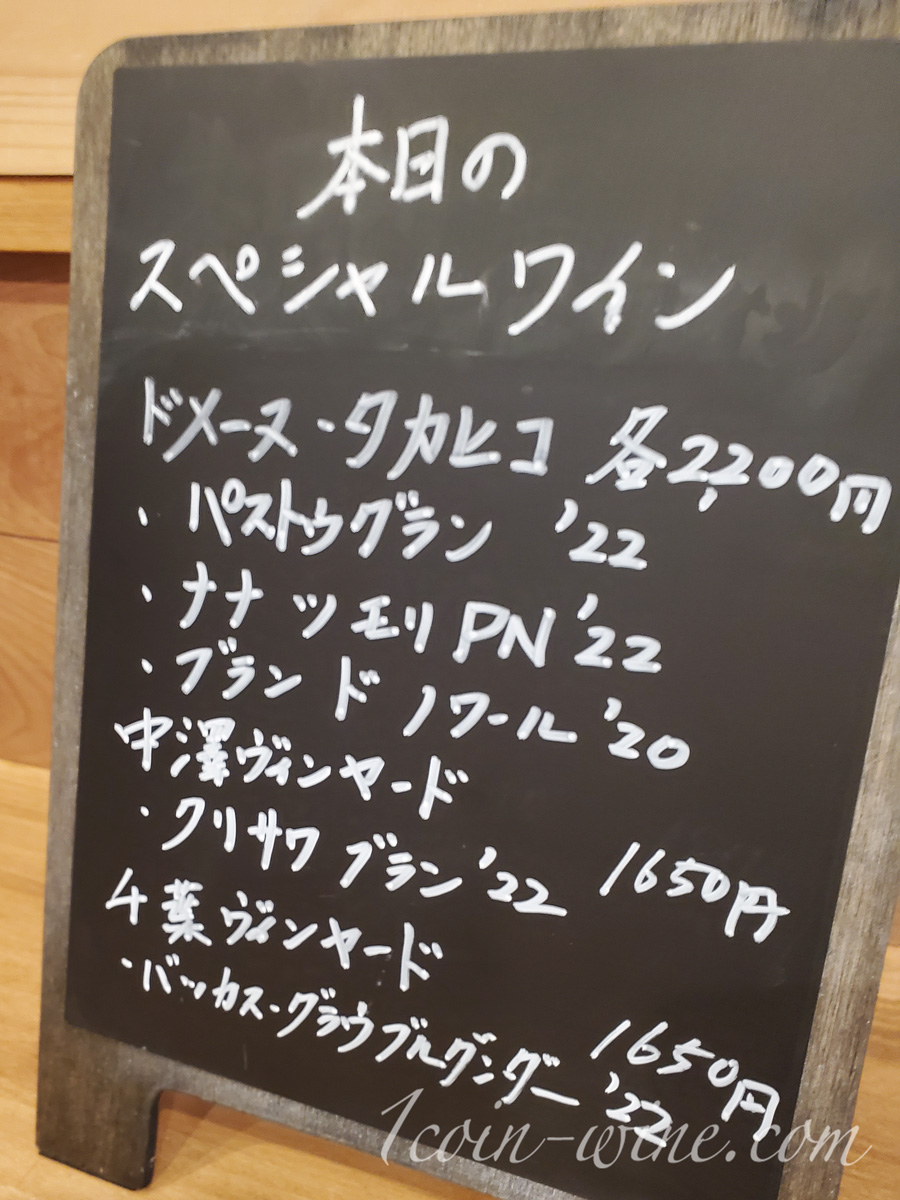 本日の
スペシャルワイン
ドメーヌ・タカヒコ 各2,200円
・パストゥグラン '22
・ナナツモリPN '22
・ブランドノワール '20
中澤ヴィンヤード
・クリサワブラン '22 1650円
千葉ヴィンヤード
・バッカス・グラウブルグンダー '22 1650円
1coin-wine.com